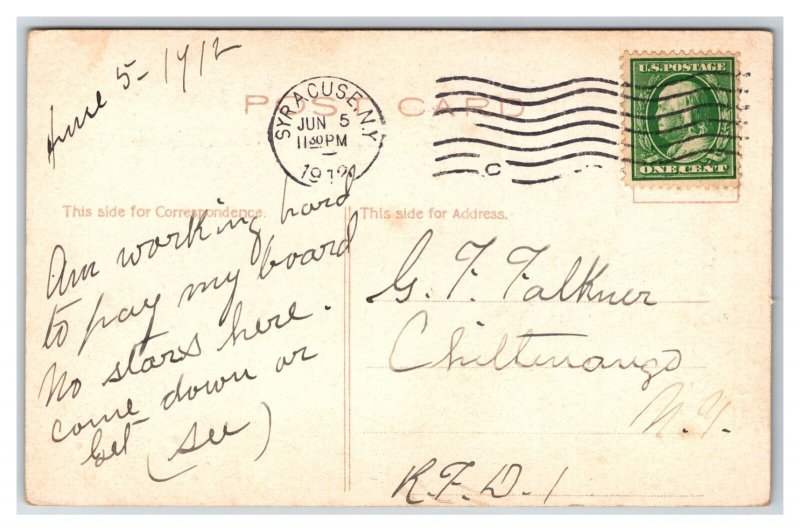 June 5-1912
POST CARD
SYRACUSE, N.Y.
JUN 5
11 30 PM
1912
C
U.S. POSTAGE
ONE CENT
This side for Correspondence.
This side for Address.
Am working hard
to pay my board
No stars here.
come down or
(See)
G. F. Falkner
Chittenango
N.Y.
R.F.D. 1